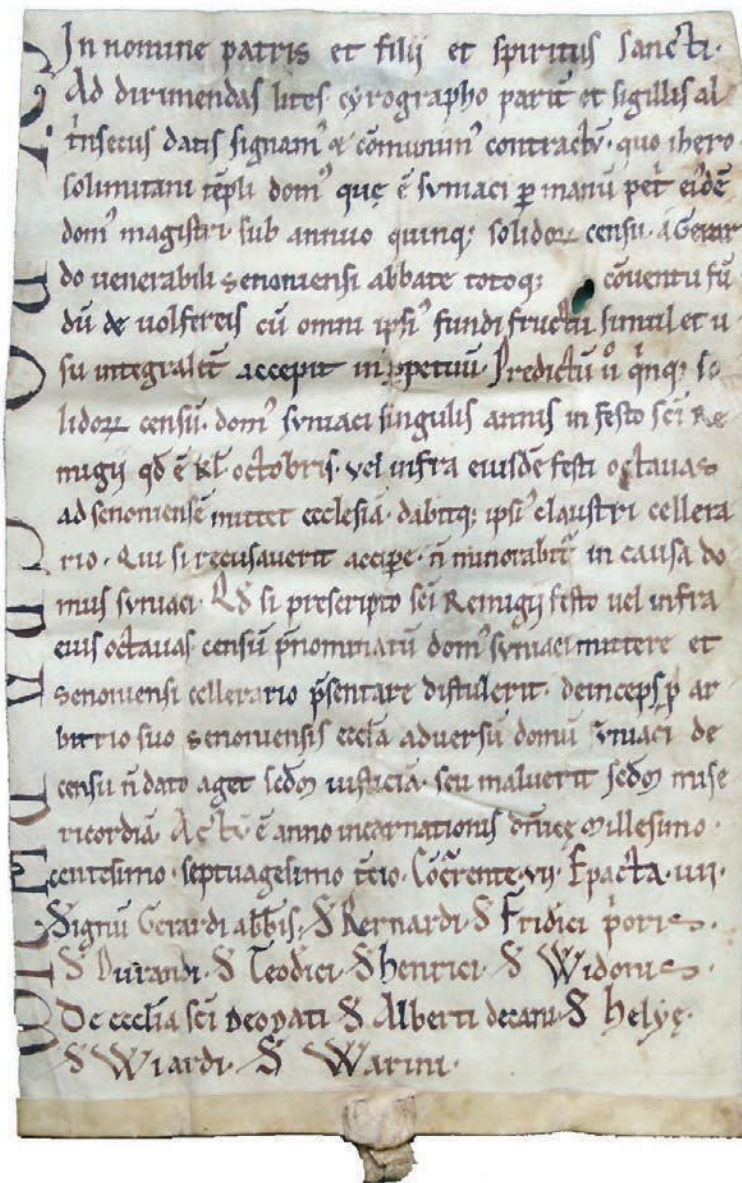 In nomine patris et filij et spiritus sancti·
Ad dirimendas lites cyrographo parit̄ et sigillis al
t̓nsecus datis signam᾽ & cōmunim᾽ contractū· quo ihero
solimitani tēpli dom᾽ quę ē syniaci p̄ manū pet̓ ei᾽dē
dom᾽ magistri· sub annuo quinq; solidoꝝ censu· a Gerar
do uenerabili senoniensi abbate totoq; cōuentu fū
dū de uolfereis cū omni ipsi᾽ fundi fructu simul et u
su integralit̄ accepit in ꝑpetuū· Predictū u̓ q̓nq; so
lidoꝝ censū· dom᾽ syniaci singulis annis in festo sc̄i Re
migij qd̄ ē kl̄ octobris· vel infra eiusdē festi octauas
ad senoniensē mittet ecclesiā· dabitq; ipsi᾽ claustri cellera
rio· Qui si recusauerit accipe· n̄ minorabit᾽ in causa do
mus syniaci· Qd̄ si prescripto sc̄i Remigij festo uel infra
eius octauas censū p̄nominatū dom᾽ syniaci mittere et
senoniensi cellerario p̄sentare distulerit· deinceps ꝑ ar
bitrio suo senoniensis eccl̄a aduersū domū syniaci de
censu n̄ dato aget scd̄m iusticiā· seu maluerit scd̄m mise
ricordiā· Actū ē anno incarnationis dn̄icę millesimo·
centesimo· septuagesimo t̄cio· Cōc̄rente· vij· Epacta· iiij·
Signū Gerardi abb̄is· S Bernardi· S Fridici p̓oris·
S Durandi· S Teodici· S henrici· S Widonis·
De eccl̄ia sc̄i deodati S Alberti decani· S helyę·
S Wiardi· S Warini·